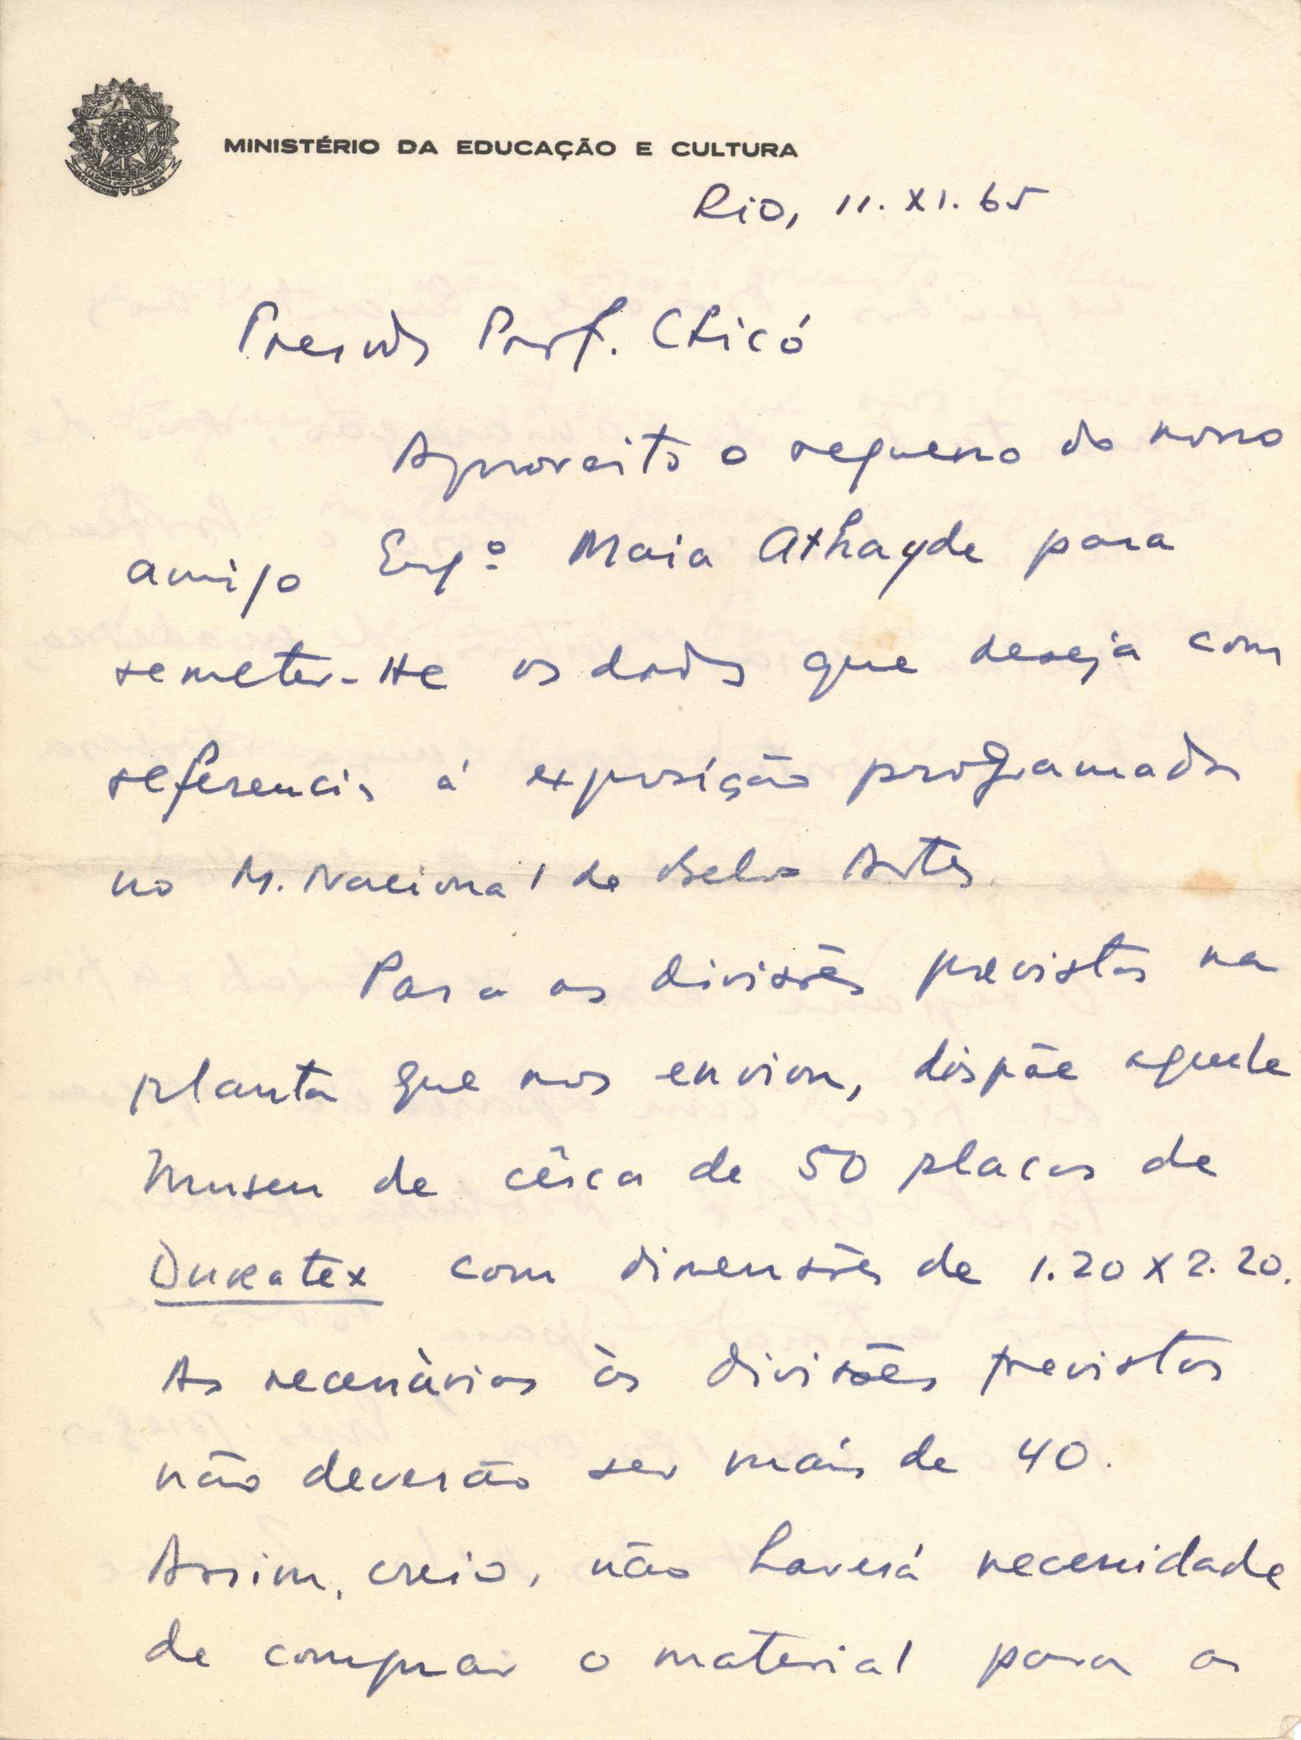 MINISTÉRIO DA EDUCAÇÃO E CULTURA
Rio, 11.XI.65
Presado Prof. Chicó
Aproveito o regresso do nosso
amigo Engº. Maia Athayde para
remeter-lhe os dados que deseja com
referencia á exposição programada
no M. Nacional de Belas Artes.
Para as divisões previstas na
planta que nos enviou, dispõe aquele
Museu de cêrca de 50 placas de
Duratex com dimensões de 1.20 X 2.20.
As necessàrias às divisões previstas
não deverão ser mais de 40.
Assim, creio, não haverá necessidade
de comprar o material para as